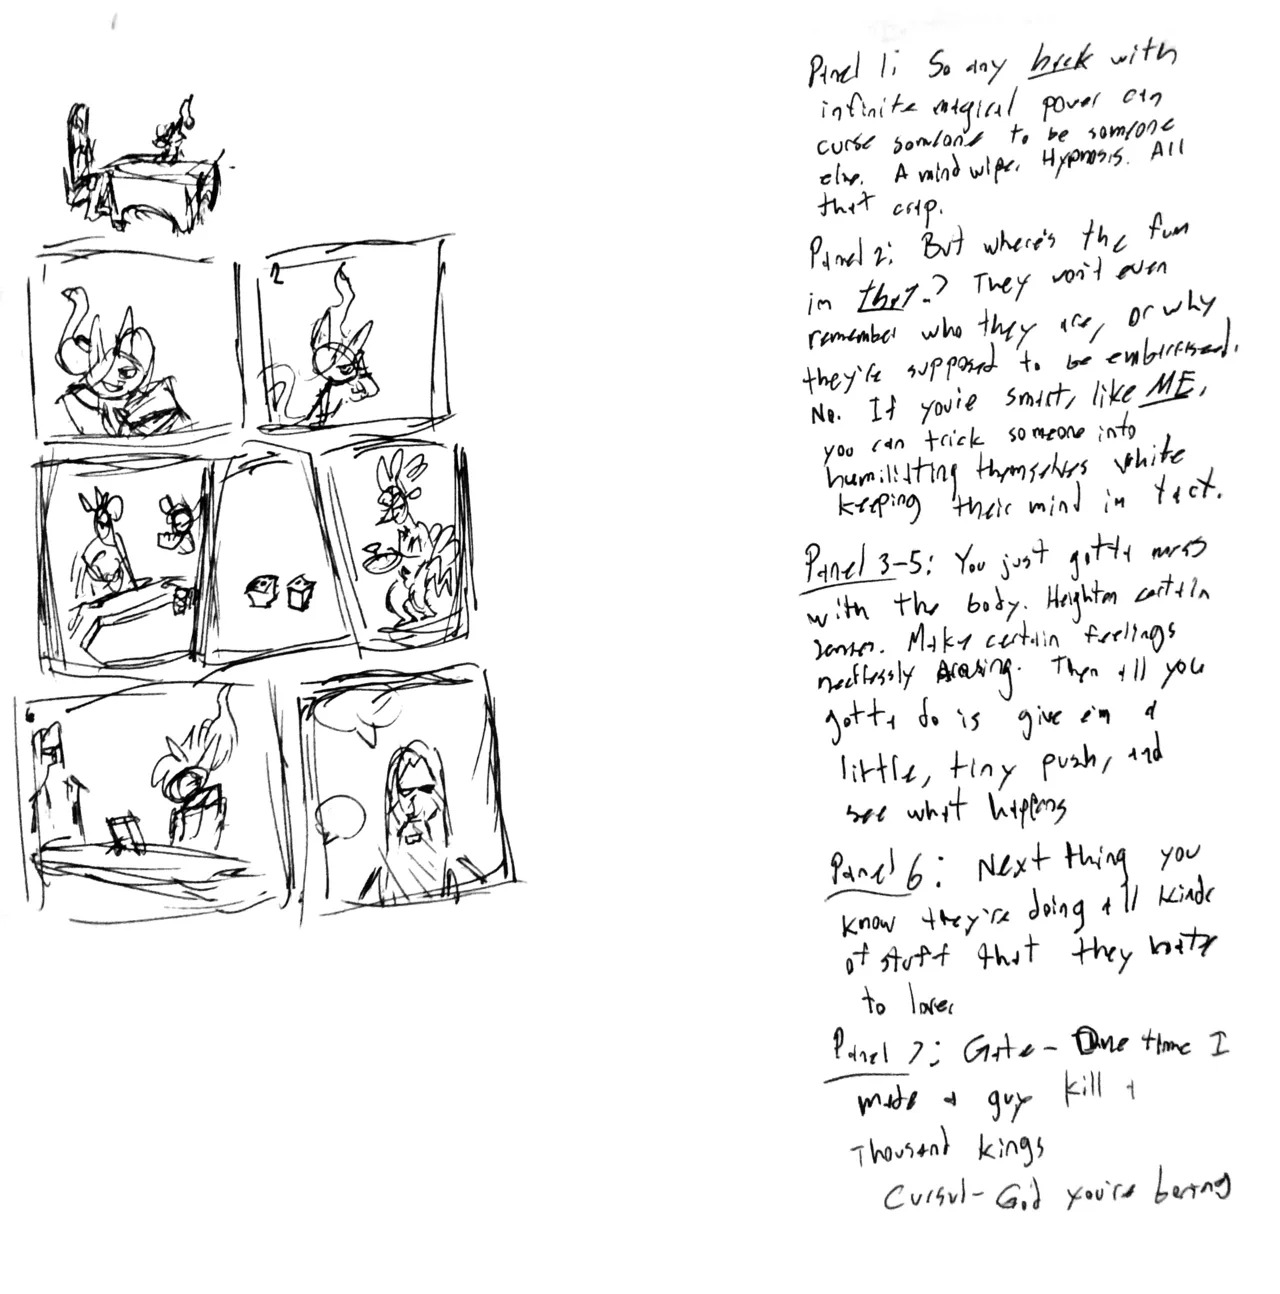 2
6
Panel 1: So any hack with
infinite magical power can
curse someone to be someone
else. A mind wipe. Hypnosis. All
that crap.
Panel 2: But where's the fun
in that? They won't even
remember who they are, or why
they're supposed to be embarrassed.
No. If you're smart, like ME,
you can trick someone into
humiliating themselves while
keeping their mind in tact.
Panel 3-5: You just gotta mess
with the body. Heighten certain
senses. Make certain feelings
needlessly Arousing. Then all you
gotta do is give em a
little, tiny push, and
see what happens
Panel 6: Next thing you
know they're doing all kinds
of stuff that they hate
to love.
Panel 7: Gate- One time I
made a guy kill a
Thousand kings
Cursul- God you're boring